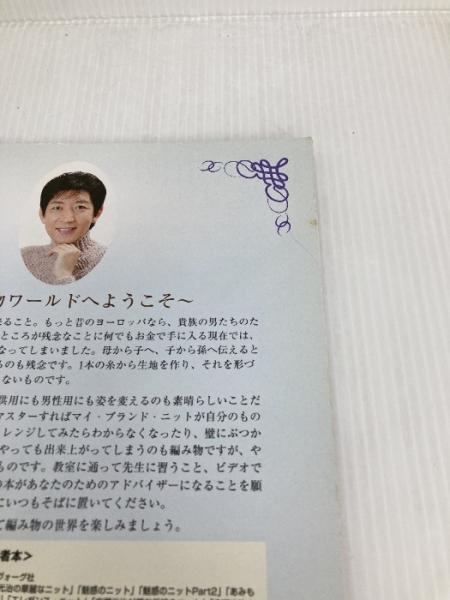 ワールドへようこそ〜
ること。もっと昔のヨーロッパなら、貴族の男たちのた
ところが残念なことに何でもお金で手に入る現在では、
なってしまいました。母から子へ、子から孫へ伝えると
るのも残念です。1本の糸から生地を作り、それを形づ
ないものです。
供用にも男性用にも姿を変えるのも素晴らしいことだ
マスターすればマイ・ブランド・ニットが自分のもの
レンジしてみたらわからなくなったり、壁にぶつか
やっても出来上がってしまうのも編み物ですが、や
ものです。教室に通って先生に習うこと、ビデオで
の本があなたのためのアドバイザーになることを願
にいつもそばに置いてください。
て編み物の世界を楽しみましょう。
者本＞
ヴォーグ社
元治の華麗なニット」「魅惑のニット」「魅惑のニットPart2」「あみも